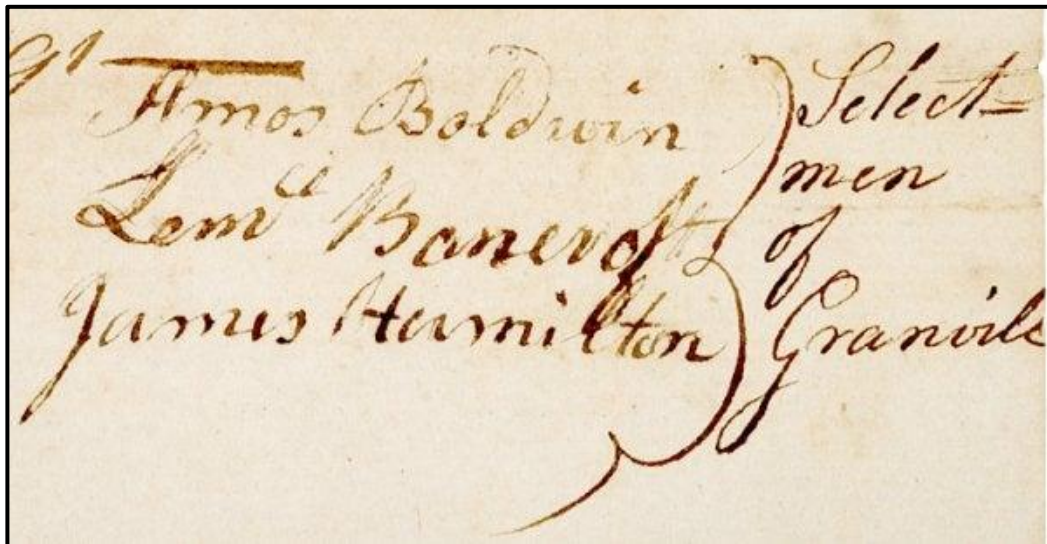 Amos Baldwin
Lem.ll Bancroft
James Hamilton
Select=
men
of
Granvile